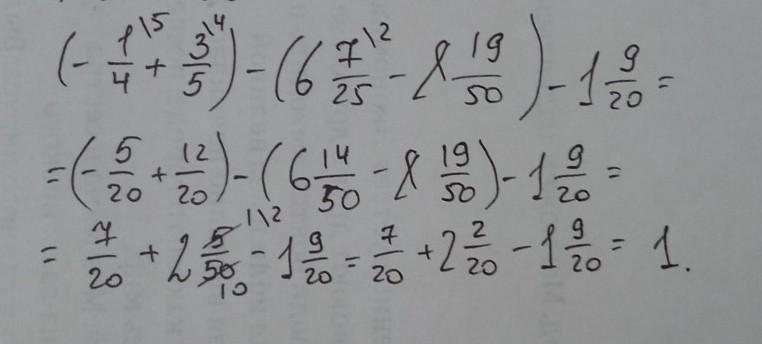 (- 1\5/4 + 3\4/5) - (6 7\2/25 - 8 19/50) - 1 9/20 =
= (- 5/20 + 12/20) - (6 14/50 - 8 19/50) - 1 9/20 =
= 7/20 + 2 5/50 1\2/10 - 1 9/20 = 7/20 + 2 2/20 - 1 9/20 = 1.